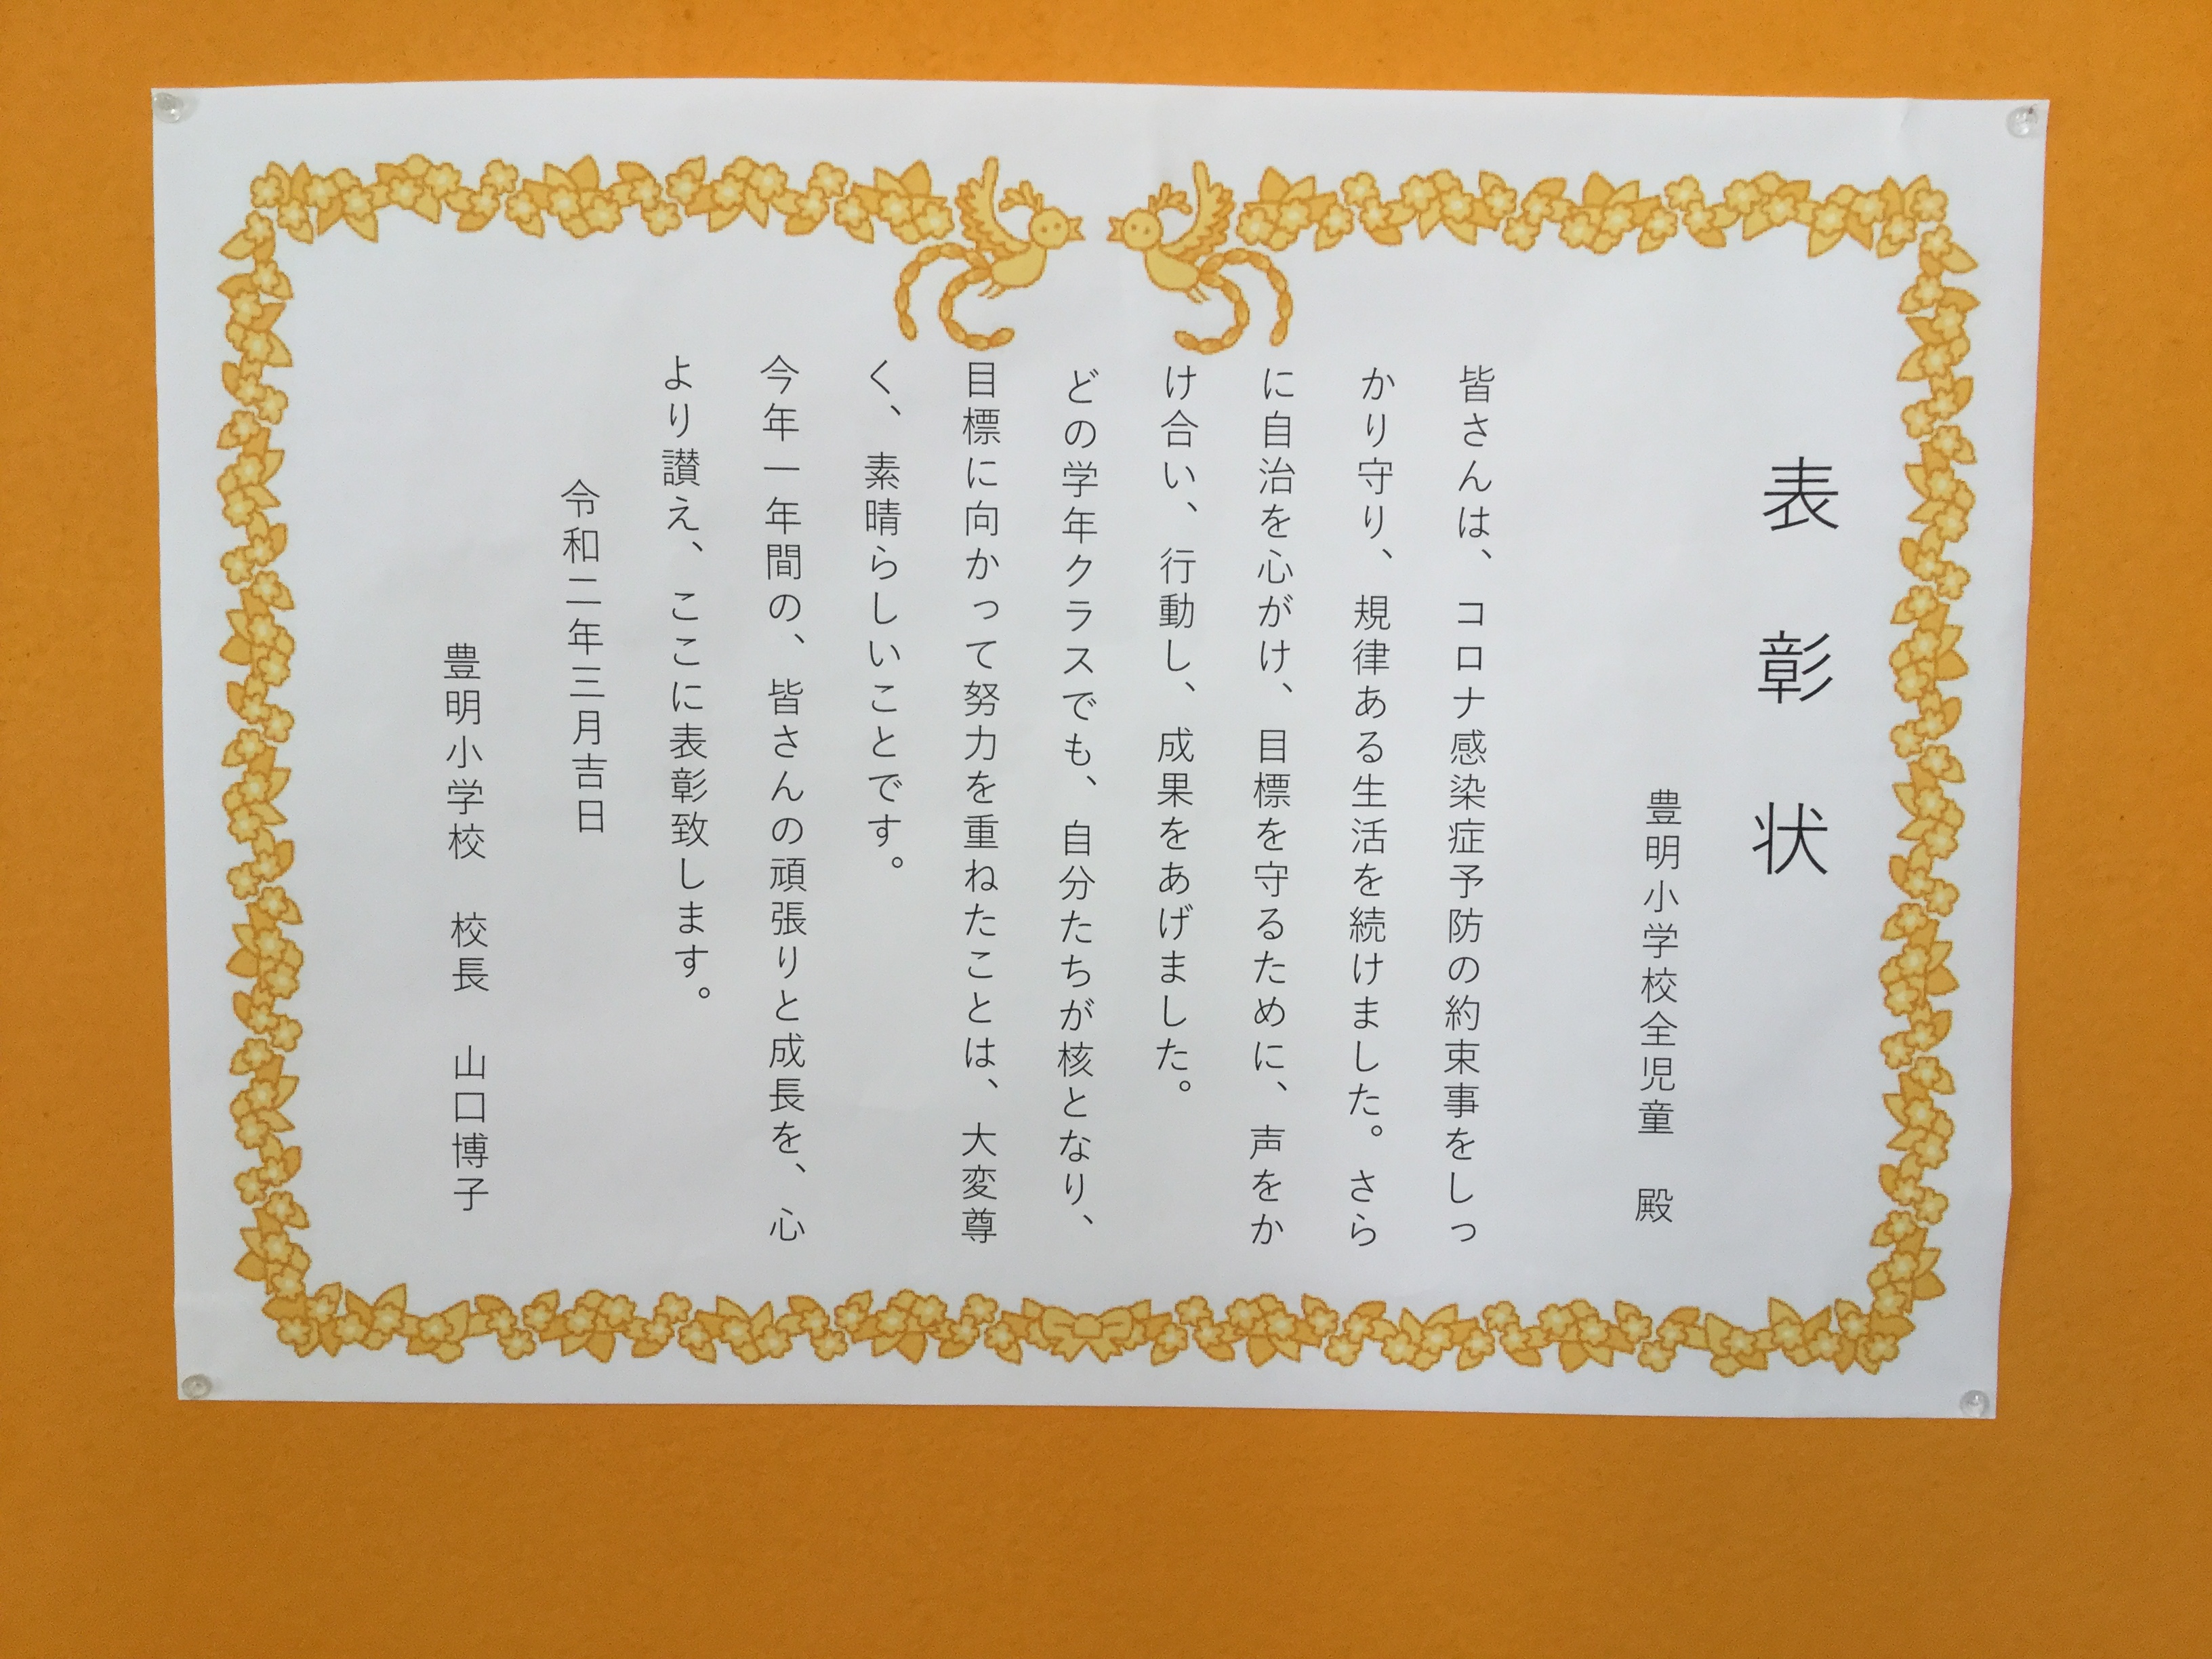 表彰状
豊明小学校全児童　殿
皆さんは、コロナ感染症予防の約束事をしっ
かり守り、規律ある生活を続けました。さら
に自治を心がけ、目標を守るために、声をか
け合い、行動し、成果をあげました。
どの学年クラスでも、自分たちが核となり、
目標に向かって努力を重ねたことは、大変尊
く、素晴らしいことです。
今年一年間の、皆さんの頑張りと成長を、心
より讃え、ここに表彰致します。
令和二年三月吉日
豊明小学校　校長　山口博子